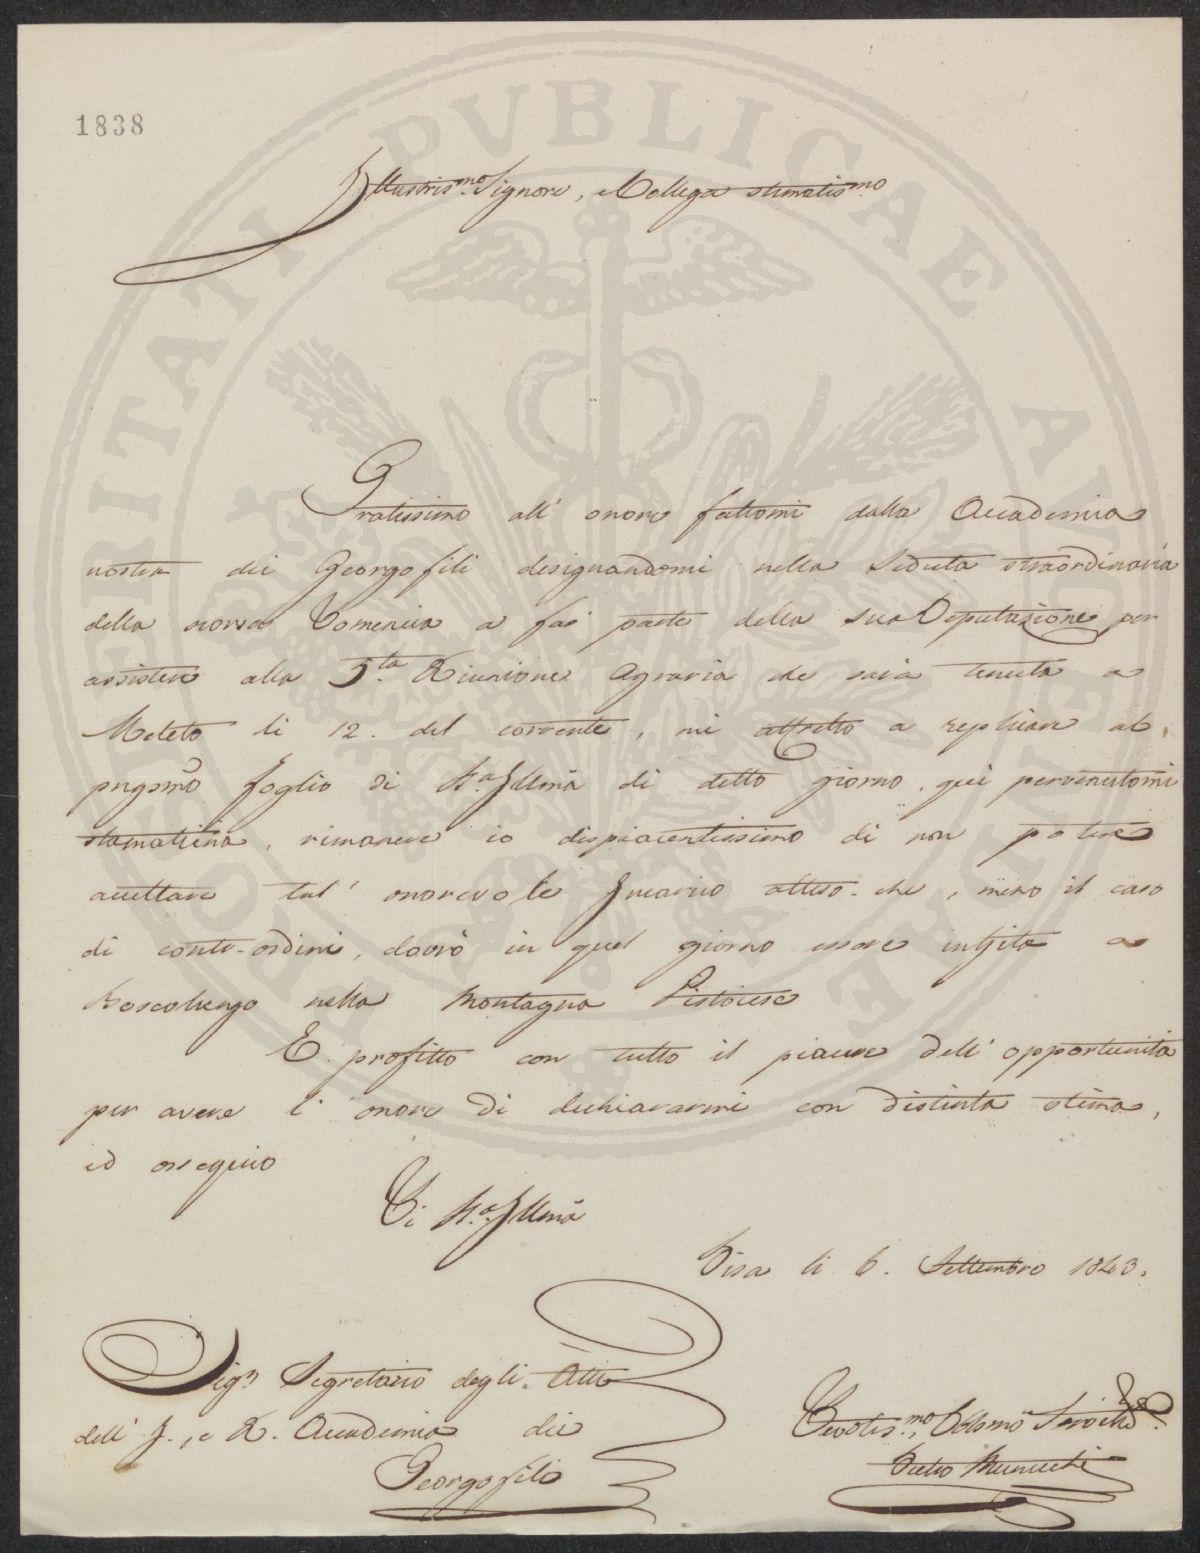 1838
Illustris.mo Signore, e Collega stimatis.mo
Gratissimo all' onore fattomi dalla Accademia
nostra dei Georgofili designandomi nella Seduta straordinaria
della scorsa Domenica a far parte della sua Deputazione per
assistere alla 5.ta Riunione Agraria che sarà tenuta a
Meleto li 12. del corrente, mi affretto a replicare al
pregmo foglio di V.a Illma di detto giorno, qui pervenutomi
stamattina, rimanere io dispiacentissimo di non potere
accettare tal' onorevole Incarico atteso-che, meno il caso
di contr-ordini, dovrò in quel giorno essere in gita a
Boscolungo nella Montagna Pistoiese
E profitto con tutto il piacere dell' opportunità
per avere l' onore di dichiararmi con distinta stima,
ed ossequio
Di V.a Illma
Pisa li 6. Settembre 1843.
Sigr Segretario degli Atti
dell' I., e R. Accademia dei
Georgofili
Devotis.mo, Obbmo Servitore
Pietro
PROSPERITATI PVBLICAE AVGENDAE